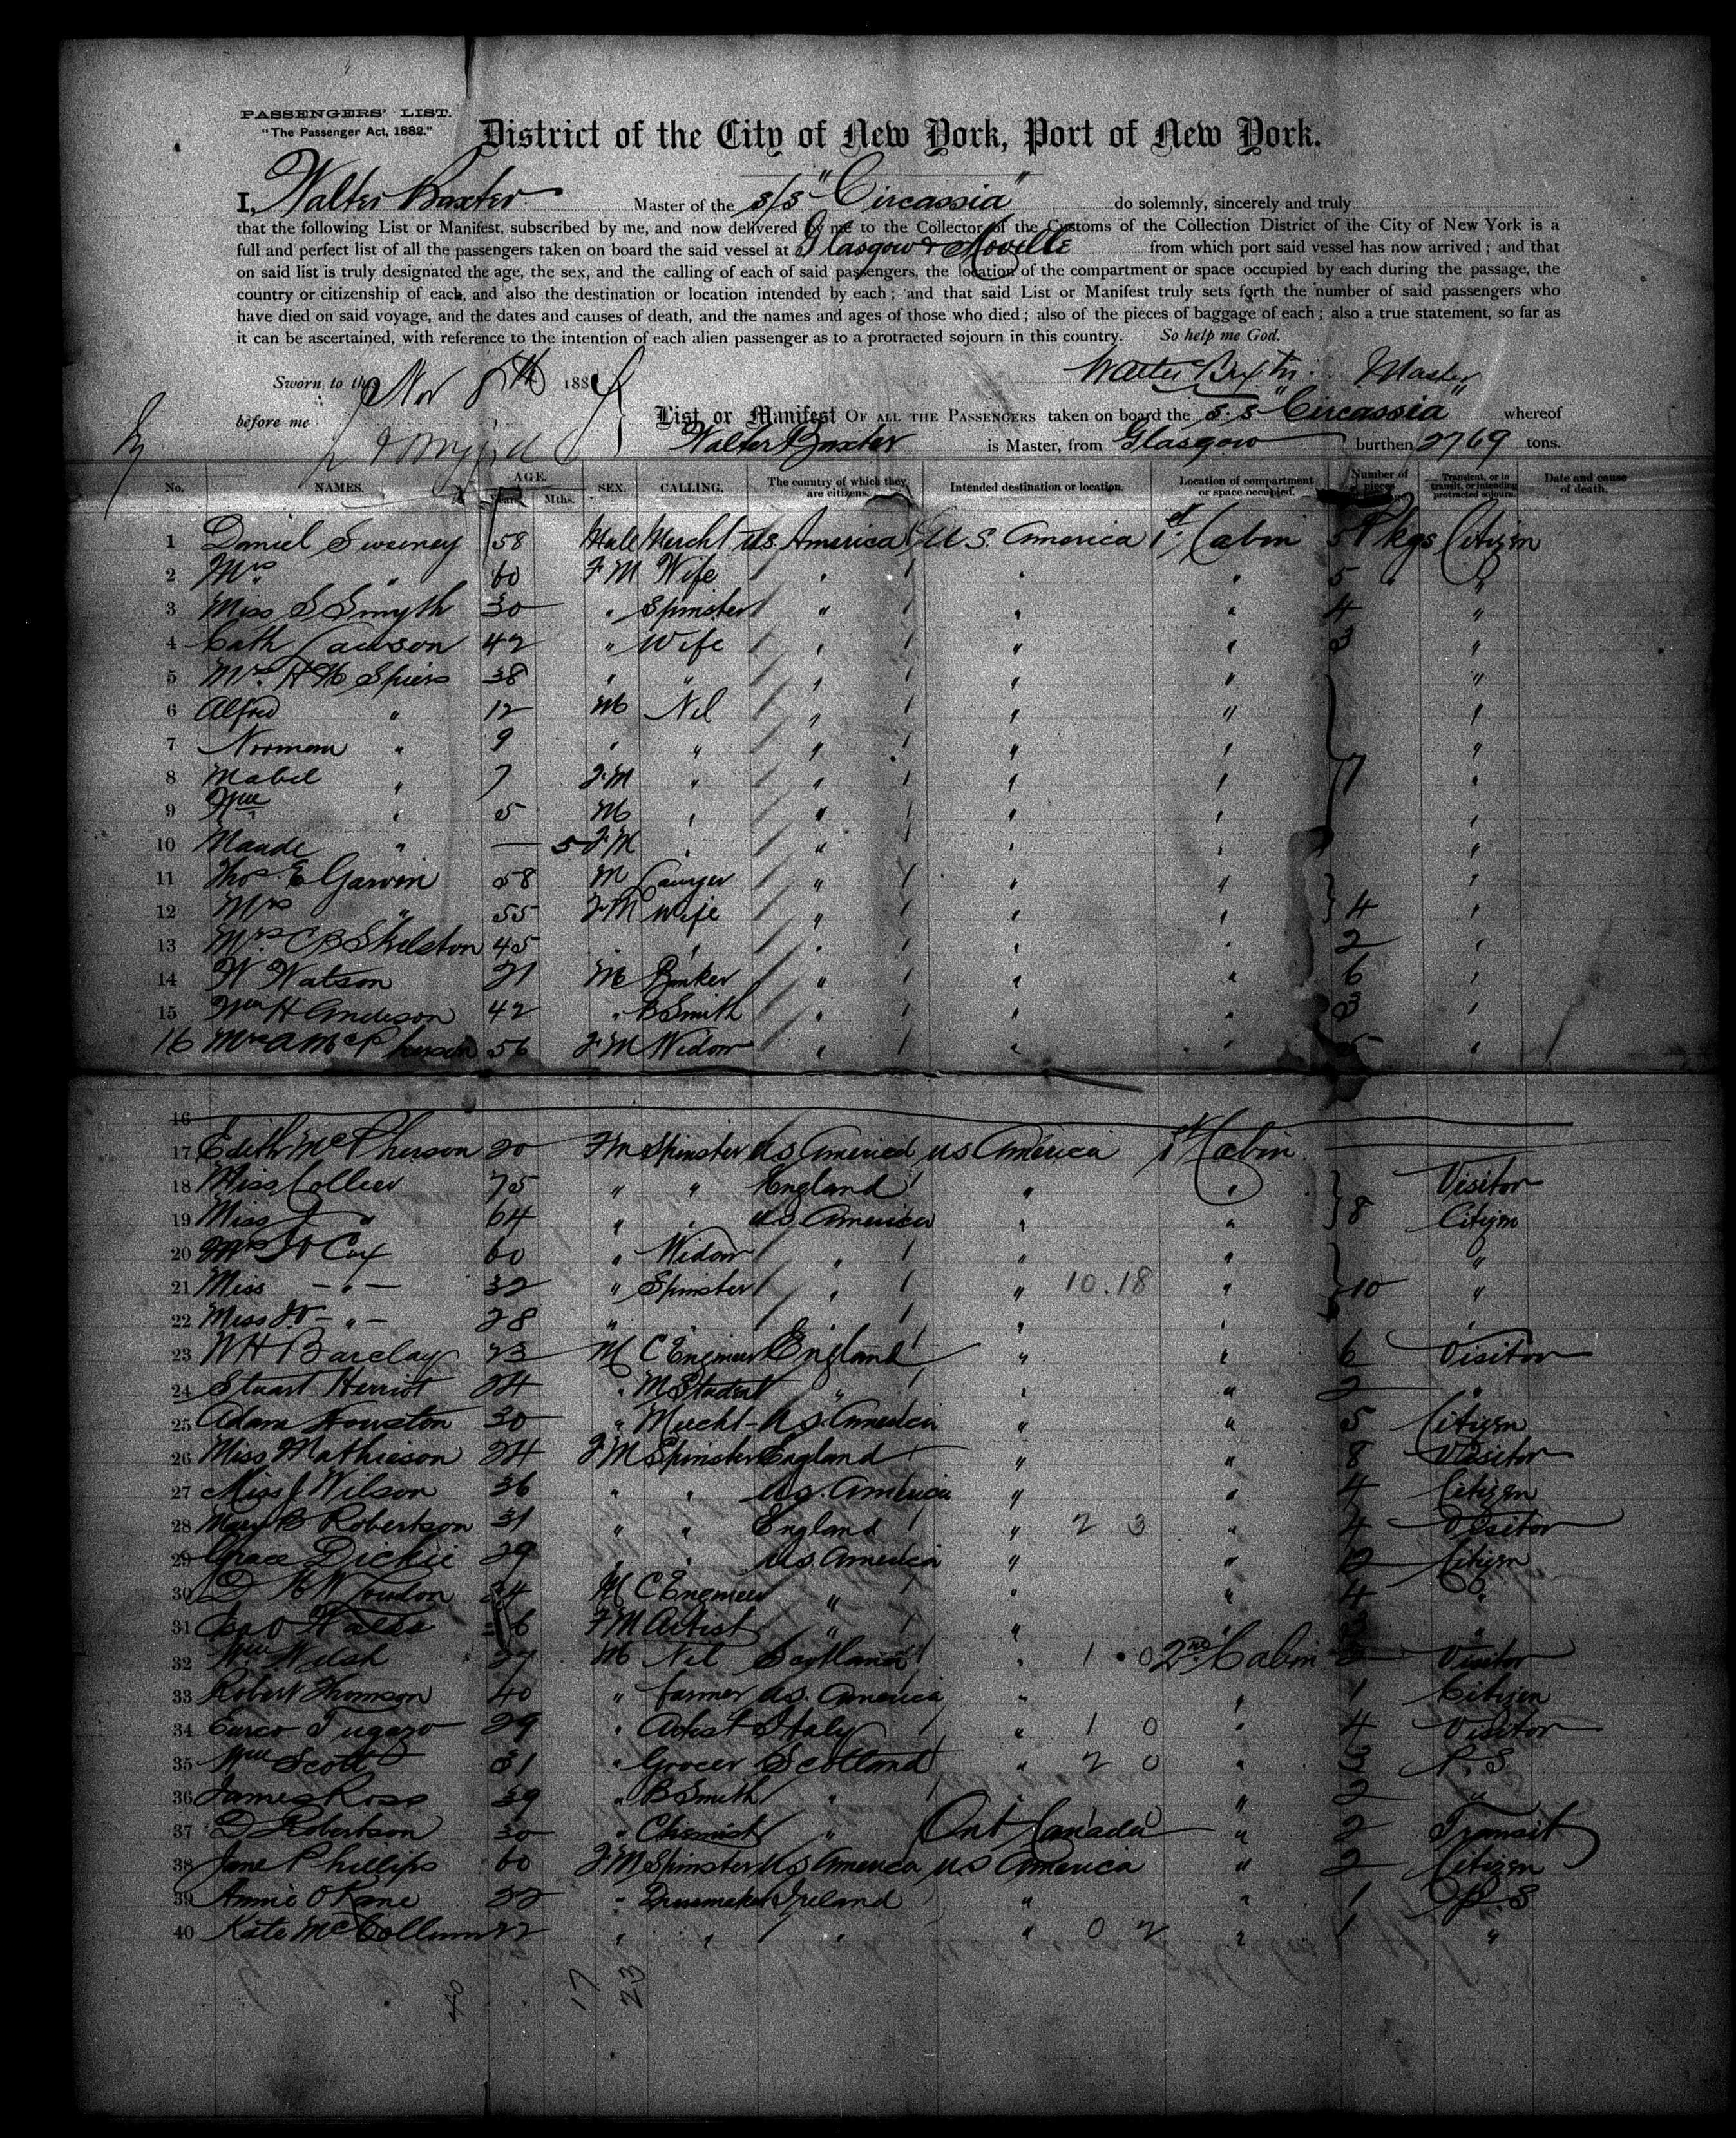 PASSENGERS' LIST.
"The Passenger Act, 1882."
District of the City of New York, Port of New York.
I, Walter Baxter Master of the s/s "Circassia" do solemnly, sincerely and truly
that the following List or Manifest, subscribed by me, and now delivered by me to the Collector of the Customs of the Collection District of the City of New York is a
full and perfect list of all the passengers taken on board the said vessel at Glasgow & Moville from which port said vessel has now arrived; and that
on said list is truly designated the age, the sex, and the calling of each of said passengers, the location of the compartment or space occupied by each during the passage, the
country or citizenship of each, and also the destination or location intended by each; and that said List or Manifest truly sets forth the number of said passengers who
have died on said voyage, and the dates and causes of death, and the names and ages of those who died; also of the pieces of baggage of each; also a true statement, so far as
it can be ascertained, with reference to the intention of each alien passenger as to a protracted sojourn in this country. So help me God.
Walter Baxter Master
Sworn to this Nov 8th 188
before me
List or Manifest OF ALL THE PASSENGERS taken on board the s.s "Circassia" whereof
Walter Baxter is Master, from Glasgow burthen 2769 tons.
No. NAMES. AGE. Years. Mths. SEX. CALLING. The country of which they are citizens. Intended destination or location. Location of compartment or space occupied. Number of pieces Transient, or in transit, or intending protracted sojourn. Date and cause of death.
1 Daniel Sweeney 58 Male Mercht U.S. America U.S. America 1st Cabin 5 Pkgs Citizen
2 Mrs " 60 FM Wife " " " 5 " "
3 Miss S Smyth 30 " Spinster " " " 4 "
4 Cath Lawson 42 " Wife " " " 3 "
5 Mrs. H W Spiers 38 " " " " " "
6 Alfred " 12 M Nil " " " "
7 Norman " 9 " " " " " "
8 Mabel " 7 FM " " " " 7 "
9 Wm " 5 M " " " " "
10 Maude " — 5 FM " " " " "
11 Thos E Garvin 58 M Lawyer " " " "
12 Mrs " 55 FM Wife " " " 4 "
13 Mrs. C B Skelston 45 " " " " " 2 "
14 W Watson 21 M Banker " " " 6 "
15 Wm H Anderson 42 " B Smith " " " 3 "
16 Mrs A McPherson 56 FM Widow " " " 5 "
16
17 Edith McPherson 20 FM Spinster US America US America 1st Cabin
18 Miss Collier 75 " " England " " Visitor
19 Miss J " 64 " " U.S. America " " 8 Citizen
20 Mrs Cox 60 " Widow " " " "
21 Miss — " — 32 " Spinster " " 10.18 " 10 "
22 Miss — " — 28 " " " " " "
23 W H Barclay 23 M C Engineer England " " 6 Visitor
24 Stuart Herriot 24 " M Student " " " 2 "
25 Adam Houston 30 " Mercht U.S. America " " 5 Citizen
26 Miss Mathieson 24 FM Spinster England " " 8 Visitor
27 Miss J Wilson 36 " " U.S. America " " 4 Citizen
28 Mary B Robertson 31 " " England " 2 3 " 4 Visitor
29 Grace Dickie 29 " " U.S America " " 2 Citizen
30 D Loudon 24 M C Engineer " " " 4 "
31 6 FM Artist " " " 3 "
32 Wm Welsh 27 M Nil Scotland " 1 0 2nd Cabin Visitor
33 Robert Thomson 40 " Farmer U.S. America " " 1 Citizen
34 29 " Artist Italy " 1 0 " 4 Visitor
35 Wm Scott 31 " Grocer Scotland " 2 0 " 3 P.S
36 James Ross 39 " B Smith " " 2 "
37 D Robertson 30 " Chemist " Ont Canada " 2 Transit
38 Jane Phillips 60 FM Spinster U S America U S America " 2 Citizen
39 Annie O'Kane 22 " Dressmaker Ireland " " 1 P.S
40 Kate McCollum 22 " " " " 0 2 " 1 "
40 17 23